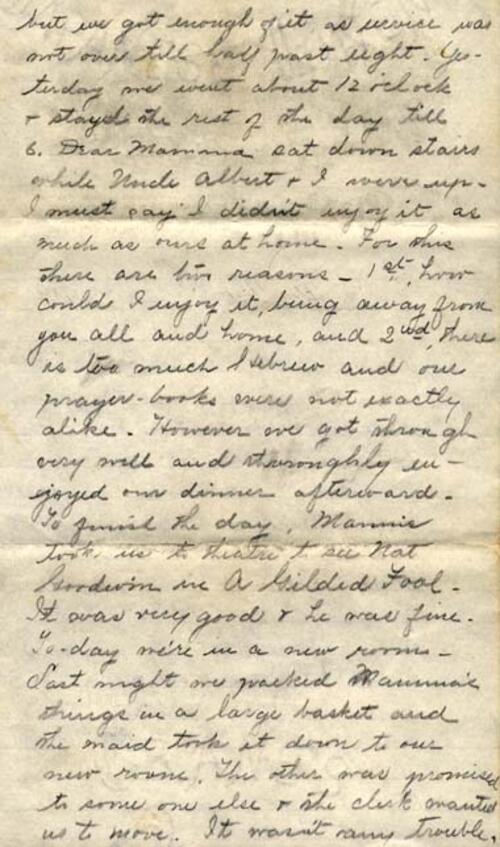 but we got enough of it as service was
not over till half past eight. Yes-
terday we went about 12 o'clock
& stayed the rest of the day till
6. Dear Mamma sat down stairs
while Uncle Albert & I were up-
I must say I didn't enjoy it as
much as ours at home. For this
there are two reasons - 1st, how
could I enjoy it, being away from
you all and home, and 2nd, there
is too much Hebrew and our
prayer-books were not exactly
alike. However we got through
very well and thoroughly en-
joyed our dinner afterward.
To finish the day, Mannie
took us to theatre to see Nat
Goodwin in A Gilded Fool.
It was very good & he was fine.
To-day we're in a new room-
Last night we packed Mamma's
things in a large basket and
the maid took it down to our
new room. The other was promised
to some one else & the clerk wanted
us to move. It wasn't any trouble.